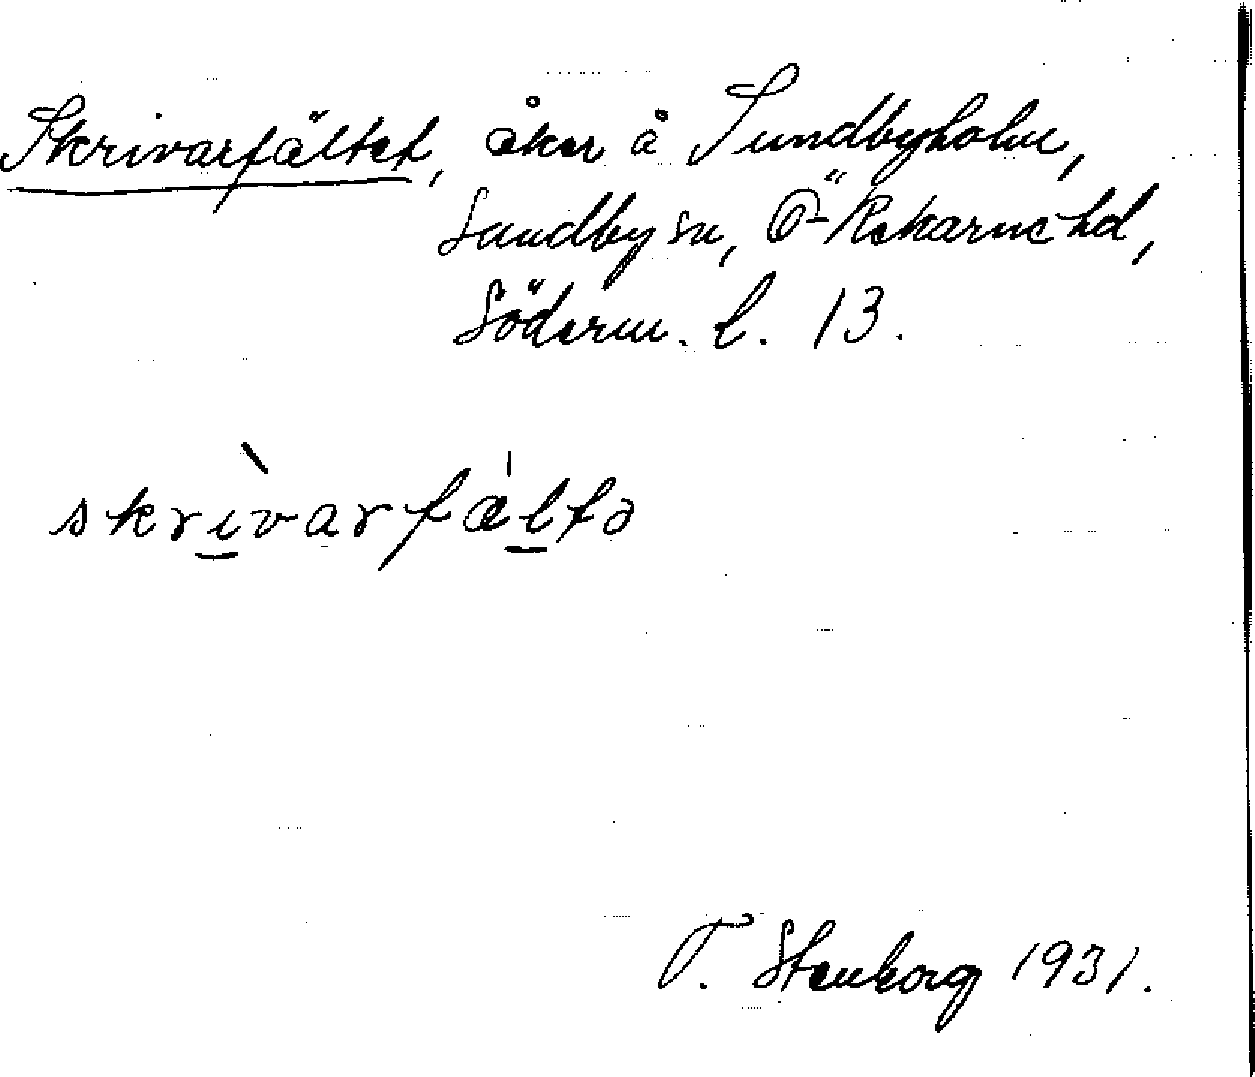 Skrivarfältet, åker å Sundbyholm,
Sundby sn, Ö-Rekarne hd,
Söderm. l. 13.
skrìvarfæ̍ltə
T. Stenborg 1931.